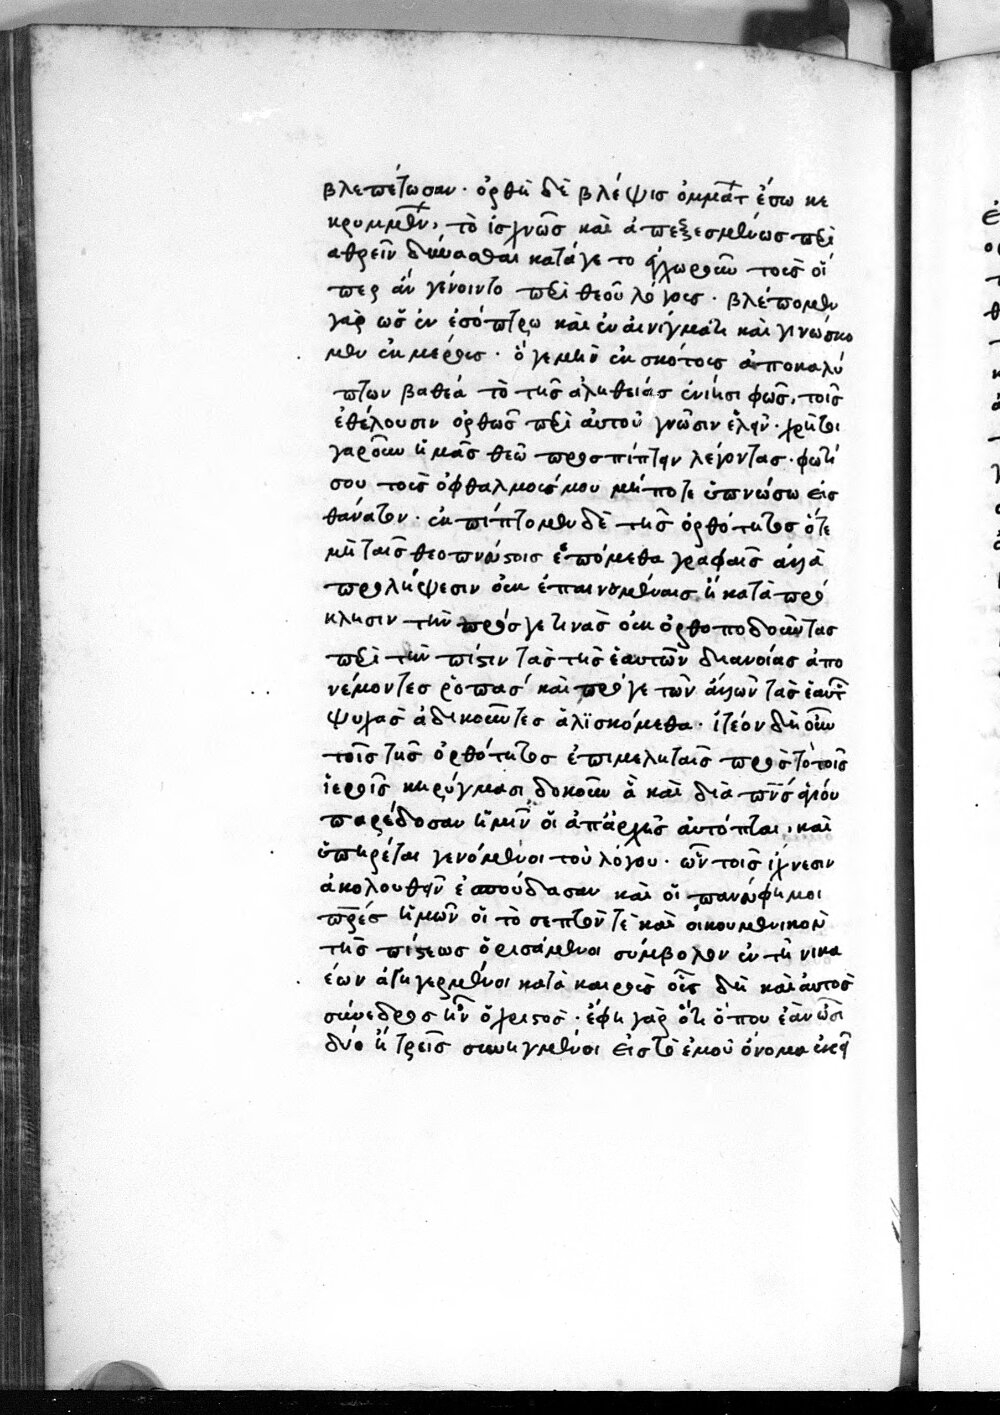 βλεπέτωσαν· ὀρθὴ δὲ βλέψις ὀμμάτ ἔσω κε
κρυμμέν, τὸ ἰσχνῶς καὶ ἀπεξεσμένως περὶ
ἀθρεῖν δύνασθαι κατάγε τὸ ἐγχωροῦν τοῖς οἵ
περ ἂν γένοιντο περὶ θεοῦ λόγοις· βλέπομεν
γὰρ ὡς ἐν ἐσόπτρω καὶ ἐν αἰνίγματι καὶ γινώσκο
μεν ἐκ μέρους· ὅ γε μὴν ἐκ σκότους ἀποκαλύ
πτων βαθέα τὸ τῆς ἀληθείας ἐνίησι φῶς, τοῖς
ἐθέλουσιν ὀρθῶς περὶ αὐτοῦ γνῶσιν ἑλεῖν· χρῆται
γαροῦν ἡμᾶς θεῶ προσπίπτειν λέγοντας· φώτι
σου τοὺς ὀφθαλμούς μου μήποτε ὑπνώσω εἰς
θάνατον· ἐκπίπτομεν δὲ τῆς ὀρθότητος ὅτε
μὴ ταῖς θεοπνεύστοις ἑπόμεθα γραφαῖς ἀλλὰ
προλήψεσιν οὐκ ἐπαινουμέναις ἢ κατὰ πρό
κλησιν τὴν πρός γε τινὰς οὐκ ὀρθοποδοῦντας
περὶ τὴν πίστιν τὰς τῆς ἑαυτῶν διανοίας ἀπο
νέμοντες ῥοπάς καὶ πρό γε τῶν ἄλλων τὰς ἑαυτ
ψυχὰς ἀδικοῦντες ἁλισκόμεθα· ἰτέον δὴ οὖν
τοῖς τῆς ὀρθότητος ἐπιμεληταῖς πρὸς τὸ τοῖς
ἱεροῖς κηρύγμασι δοκοῦν ἃ καὶ διὰ πνς ἁγίου
παρέδοσαν ἡμῖν οἱ ἀπάρχῆς αὐτόπται, καὶ
ὑπηρέται γενόμενοι τοῦ λόγου· ὧν τοῖς ἴχνεσιν
ἀκολουθεῖν ἐσπούδασαν καὶ οἱ πανεύφημοι
πρές ἡμῶν οἳ τὸ σεπτόν τὲ καὶ οἰκουμενικὸν
τῆς πίστεως ὁρισάμενοι σύμβολον ἐν τῆ νικα
έων ἀγηγερμένοι κατὰ καιροὺς οἷς δὴ καὶ αὐτὸς
σύνεδρος ἦν ὁ χριστός· ἔφη γὰρ ὅτι ὅπου ἐὰν ὦσι
δύο ἢ τρεῖς συνηγμένοι εἰς τὸ ἐμοῦ ὄνομα ἐκεῖ